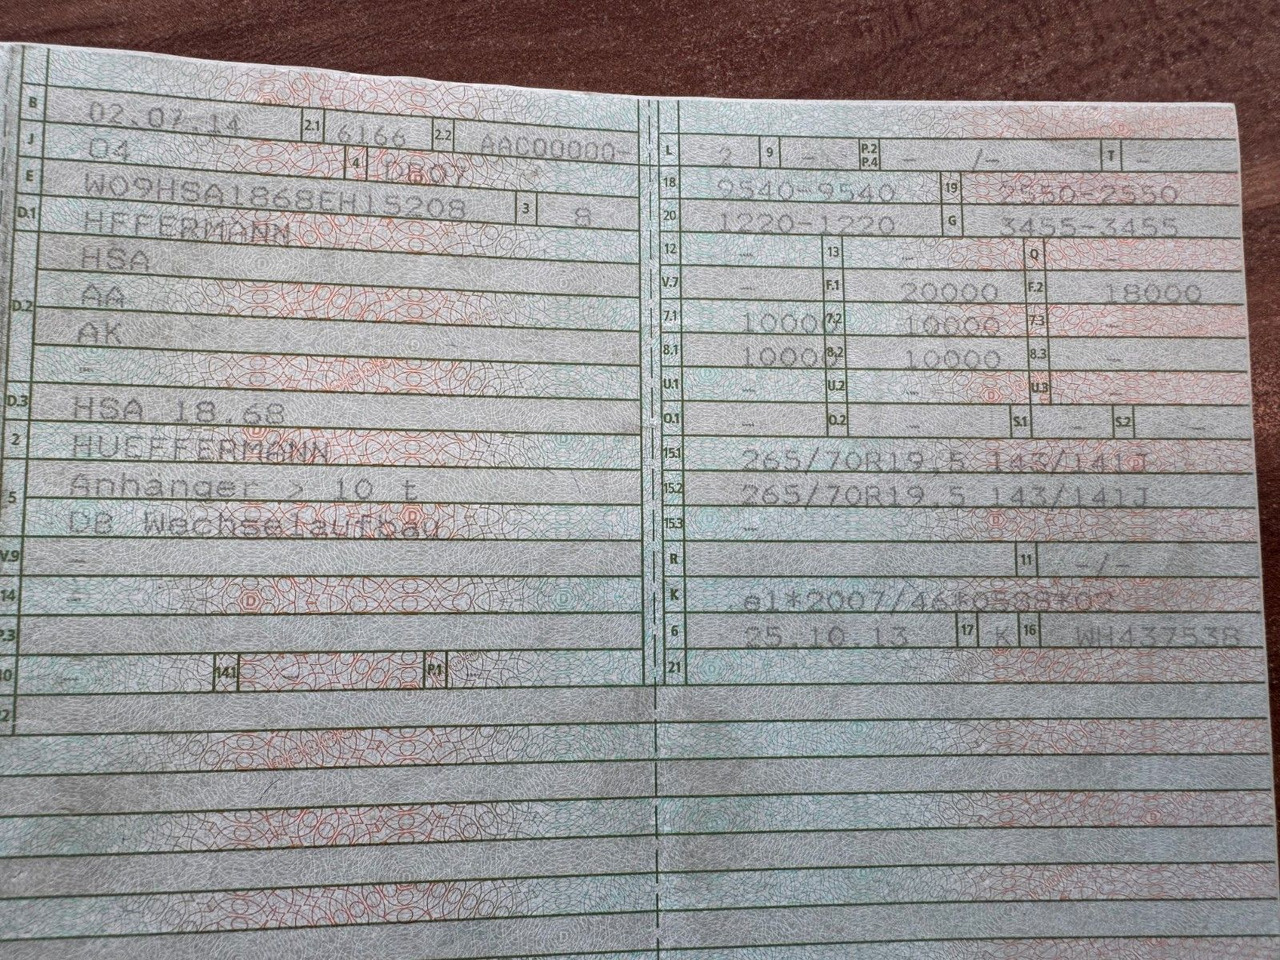 B 02.07.14 2.1 6166 2.2 AAC00000-
J O4 4 DB0V
E W09HSA1868EH15208 3 8
D.1 HFFERMANN
HSA
D.2 AA
AK
-
D.3 HSA 18.68
2 HUEFFERMANN
5 Anhanger > 10 t
DB Wechselaufbau
V.9 -
14 -
P.3
10 - 14.1 - P.1 -
22
L 2 9 - P.2 P.4 - /- T -
18 9540-9540 19 2550-2550
20 1220-1220 G 3455-3455
12 - 13 - Q -
V.7 - F.1 20000 F.2 18000
7.1 10000 7.2 10000 7.3 -
8.1 10000 8.2 10000 8.3 -
U.1 - U.2 - U.3
O.1 - O.2 - S.1 - S.2 -
15.1 265/70R19,5 143/141J
15.2 265/70R19,5 143/141J
15.3 -
R 11 -/-
K e1*2007/46*0508*02
6 25.10.13 17 K 16 WH437538
21